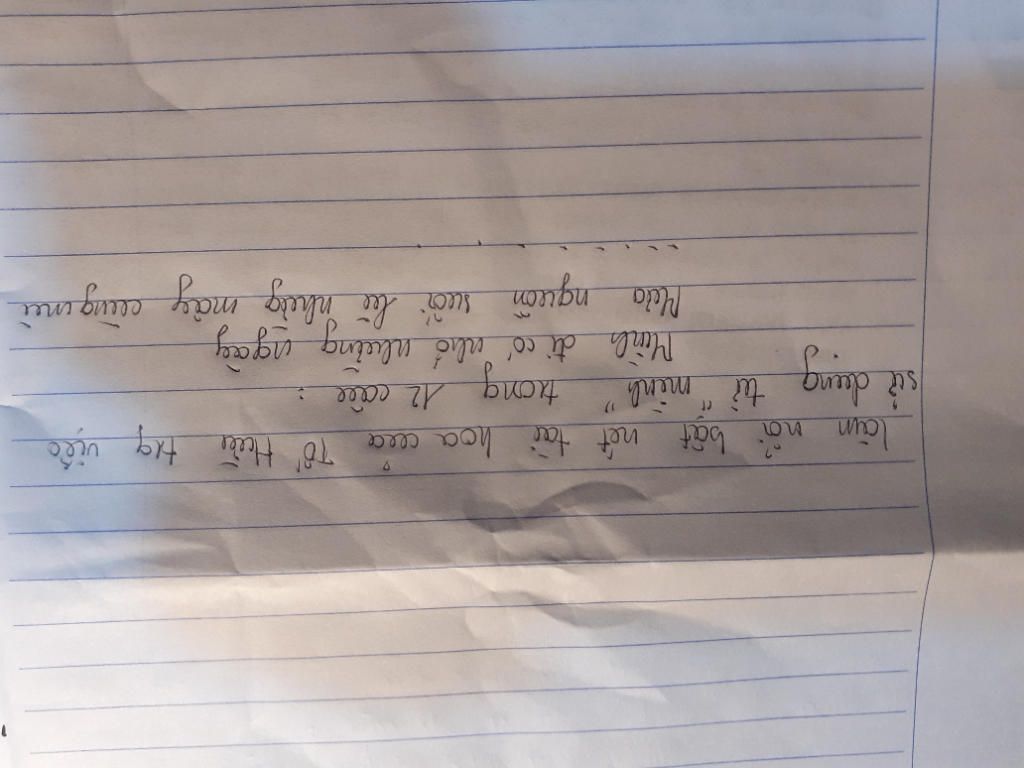 làm nổi bật nét tài hoa của Tố Hữu trg việc
sử dụng từ "mình" trong 12 câu :
Mình đi có nhớ những ngày
Mưa nguồn suối lũ những mây cùng mù
.......